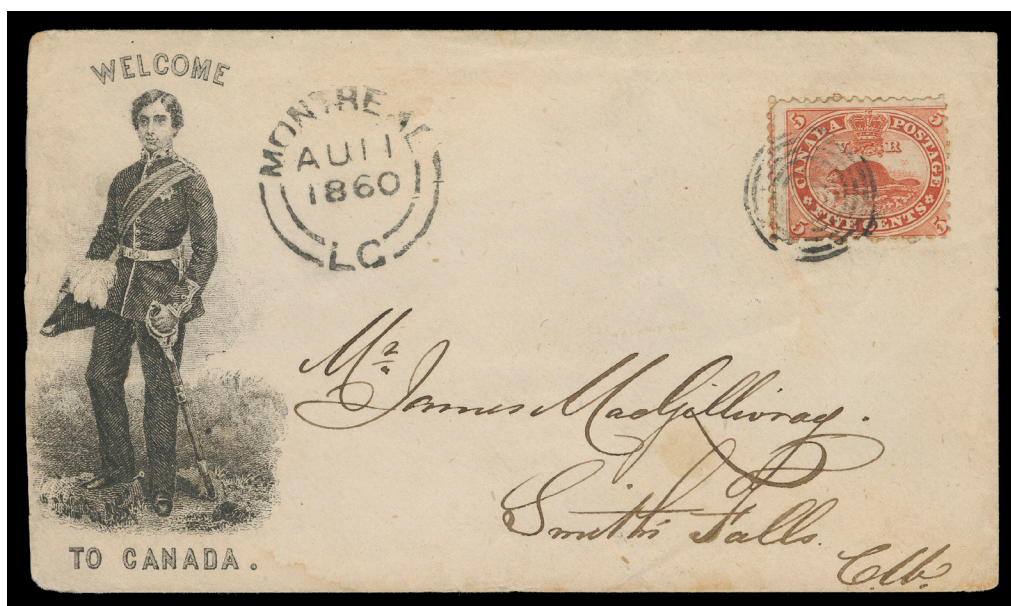 WELCOME
TO CANADA.
MONTREAL
AU 11
1860
L.C
5 5
CANADA POSTAGE
V R
FIVE CENTS
5 5
Mr.
James MacGillivray.
Smith's Falls.
C.W.